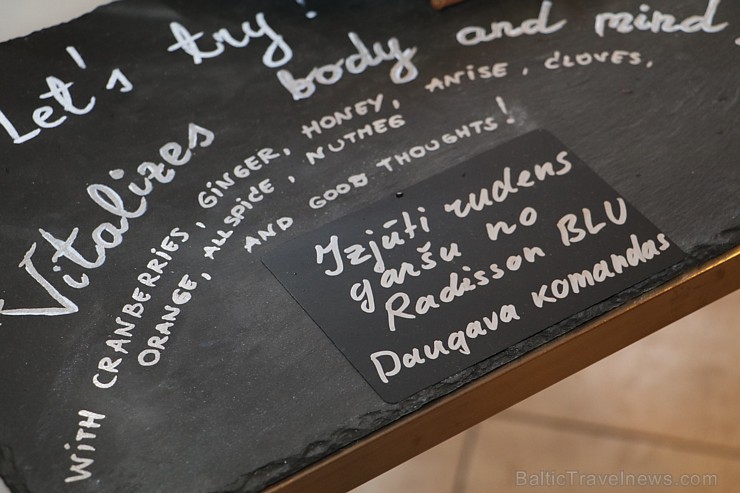 Let's try!
Vitalizes body and mind,
WITH CRANBERRIES, GINGER, HONEY, ANISE, CLOVES,
ORANGE, ALLSPICE, NUTMEG
AND GOOD THOUGHTS!
Izjūti rudens
garšu no
Radisson BLU
Daugava komandas
BalticTravelnews.com